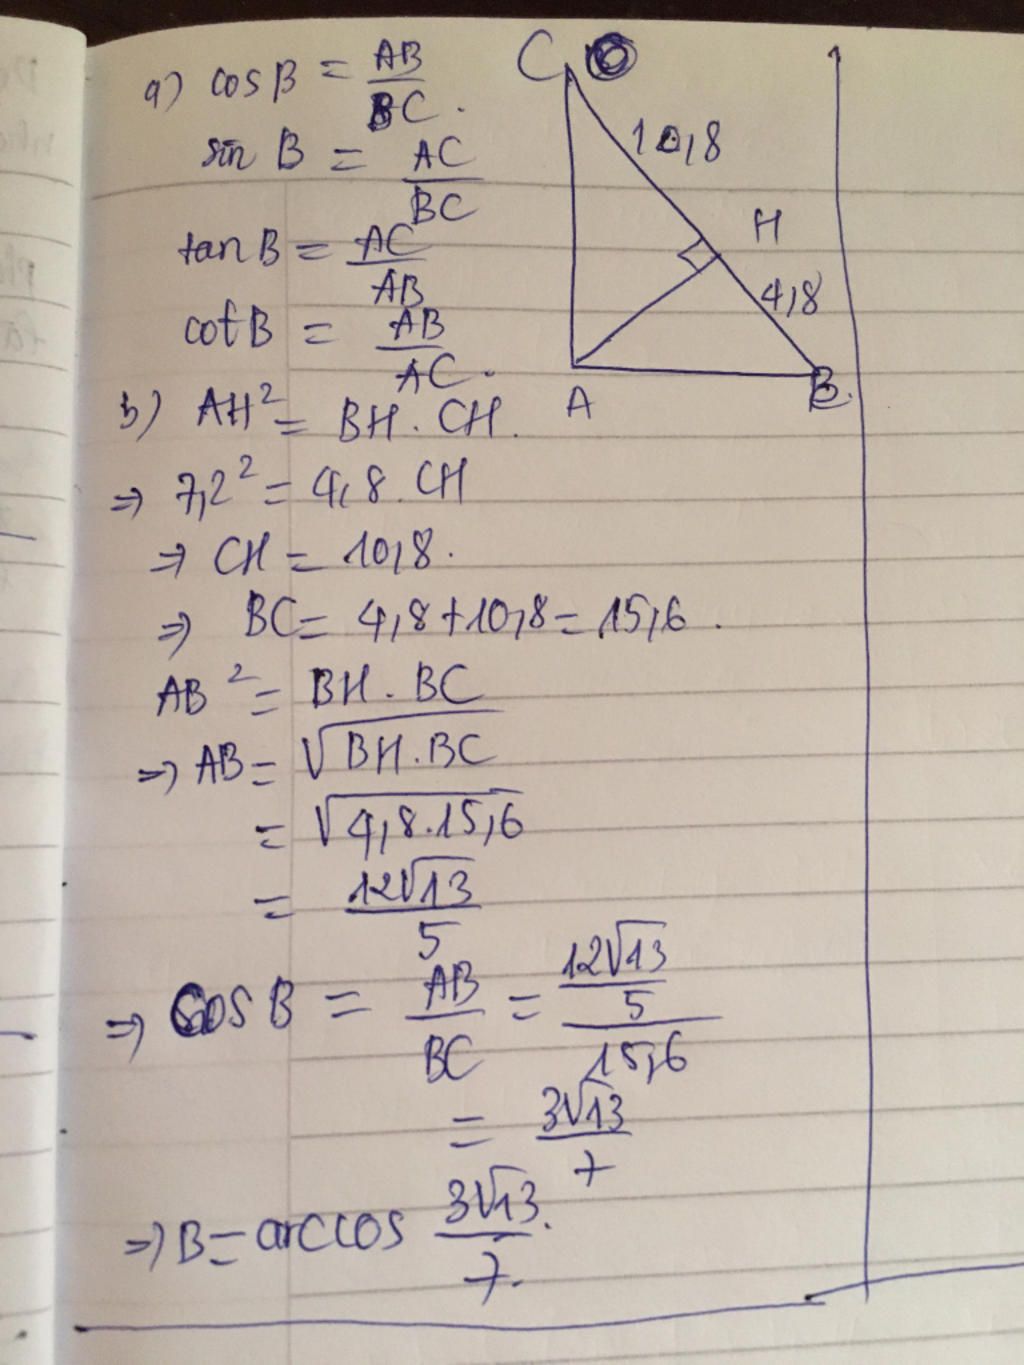 a) cosB = AB/BC.
sin B = AC/BC
tanB = AC/AB
cotB = AB/AC.
C
10,8
H
4,8
A
B
b) AH² = BH . CH.
=> 7,2² = 4,8 . CH
=> CH = 10,8.
=> BC = 4,8 + 10,8 = 15,6 .
AB² = BH . BC
=> AB = √BH.BC
= √4,8.15,6
= 12√13/5
=> Cos B = AB/BC = 12√13/5/15,6
= 3√13/7
=> B = arccos 3√13/7.